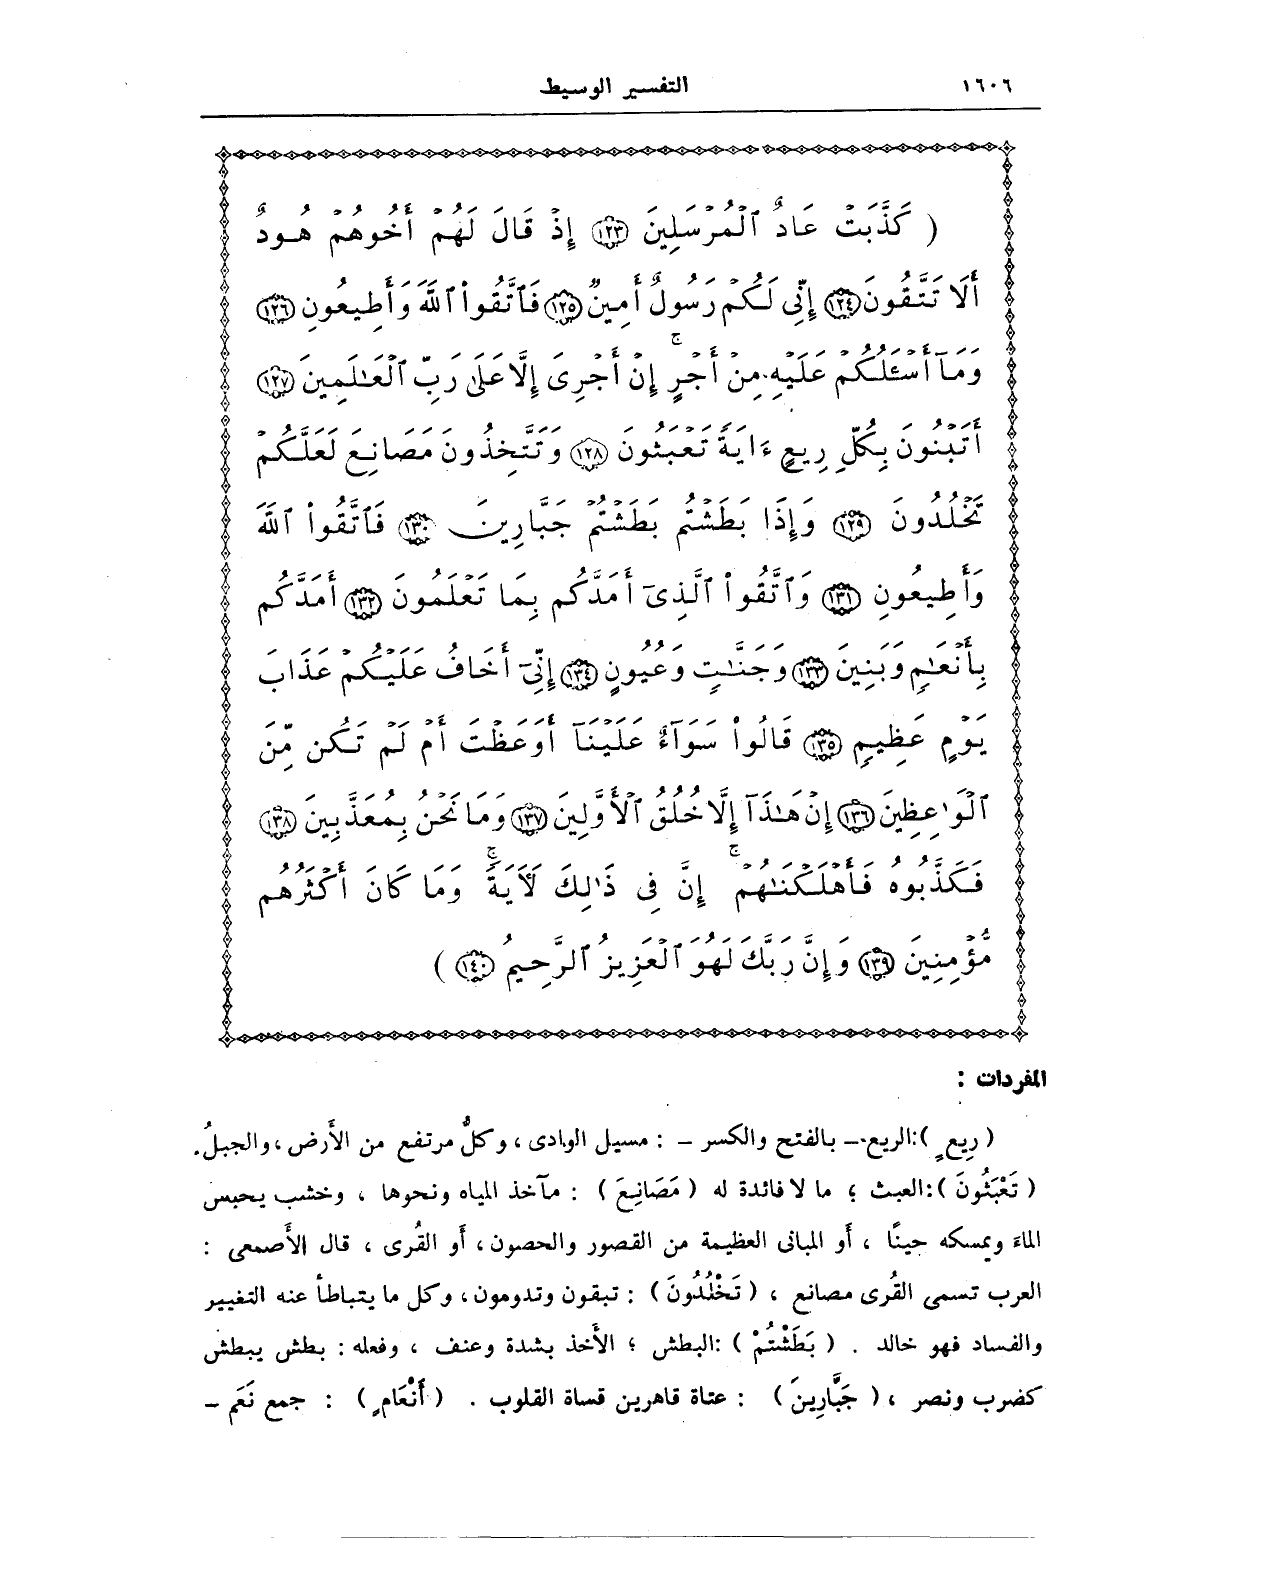 ١٦٠٦
التفسير الوسيط
( كَذَّبَتْ عَادٌ ٱلْمُرْسَلِينَ ١٢٣ إِذْ قَالَ لَهُمْ أَخُوهُمْ هُودٌ
أَلَا تَتَّقُونَ ١٢٤ إِنِّى لَكُمْ رَسُولٌ أَمِينٌ ١٢٥ فَٱتَّقُوا۟ ٱللَّهَ وَأَطِيعُونِ ١٢٦
وَمَآ أَسْـَٔلُكُمْ عَلَيْهِ مِنْ أَجْرٍ ۖ إِنْ أَجْرِىَ إِلَّا عَلَىٰ رَبِّ ٱلْعَـٰلَمِينَ ١٢٧
أَتَبْنُونَ بِكُلِّ رِيعٍ ءَايَةً تَعْبَثُونَ ١٢٨ وَتَتَّخِذُونَ مَصَانِعَ لَعَلَّكُمْ
تَخْلُدُونَ ١٢٩ وَإِذَا بَطَشْتُم بَطَشْتُمْ جَبَّارِينَ ١٣٠ فَٱتَّقُوا۟ ٱللَّهَ
وَأَطِيعُونِ ١٣١ وَٱتَّقُوا۟ ٱلَّذِىٓ أَمَدَّكُم بِمَا تَعْلَمُونَ ١٣٢ أَمَدَّكُم
بِأَنْعَـٰمٍ وَبَنِينَ ١٣٣ وَجَنَّـٰتٍ وَعُيُونٍ ١٣٤ إِنِّىٓ أَخَافُ عَلَيْكُمْ عَذَابَ
يَوْمٍ عَظِيمٍ ١٣٥ قَالُوا۟ سَوَآءٌ عَلَيْنَآ أَوَعَظْتَ أَمْ لَمْ تَكُن مِّنَ
ٱلْوَٰعِظِينَ ١٣٦ إِنْ هَـٰذَآ إِلَّا خُلُقُ ٱلْأَوَّلِينَ ١٣٧ وَمَا نَحْنُ بِمُعَذَّبِينَ ١٣٨
فَكَذَّبُوهُ فَأَهْلَكْنَـٰهُمْ ۚ إِنَّ فِى ذَٰلِكَ لَـَٔايَةً ۖ وَمَا كَانَ أَكْثَرُهُم
مُّؤْمِنِينَ ١٣٩ وَإِنَّ رَبَّكَ لَهُوَ ٱلْعَزِيزُ ٱلرَّحِيمُ ١٤٠ )
المفردات :
( رِيعٍ ):الريع - بالفتح والكسر - : مسيل الوادى ، وكلُّ مرتفع من الأَرض ، والجبلُ.
( تَعْبَثُونَ ):العبث ؛ ما لا فائدة له ( مَصَانِعَ ) : مآخذ المياه ونحوها ، وخشب يحبس
الماءَ ويمسكه حينًا ، أَو المبانى العظيمة من القصور والحصون ، أَو القُرى ، قال الأَصمعى :
العرب تسمى القُرى مصانع ، ( تَخْلُدُونَ ) : تبقون وتدومون ، وكل ما يتباطأُ عنه التغيير
والفساد فهو خالد . ( بَطَشْتُمْ ):البطش ؛ الأَخذ بشدة وعنف ، وفعله : بطش يبطش
كضرب ونصر ، ( جَبَّارِينَ ) : عتاة قاهرين قساة القلوب . ( أَنْعَامٍ ) : جمع نَعَم -